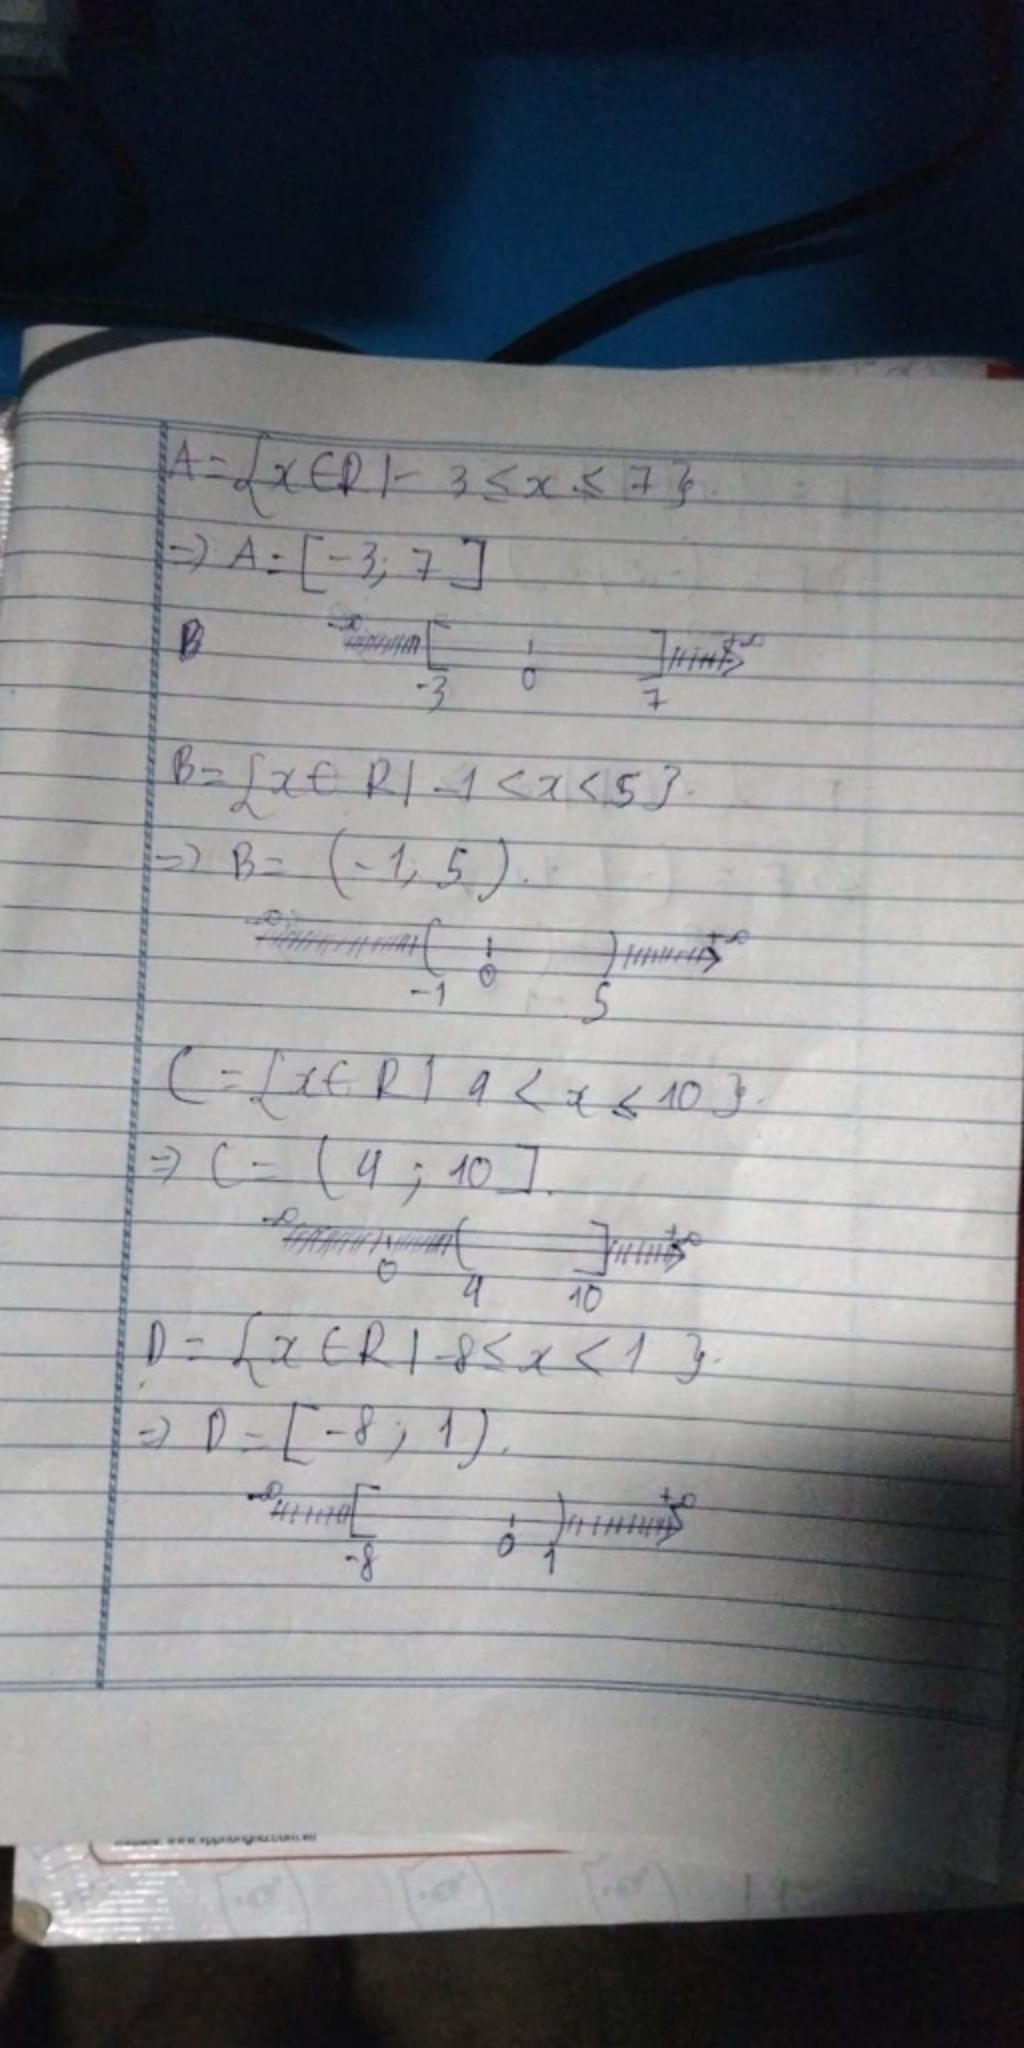 A = {x ∈ R | - 3 ≤ x ≤ 7}.
=> A = [-3; 7]
B -∞ +∞
-3 0 7
B = {x ∈ R | -1 < x < 5}.
=> B = (-1, 5).
-∞ +∞
-1 0 5
C = {x ∈ R | 4 < x ≤ 10}.
=> C = (4 ; 10].
-∞ +∞
0 4 10
D = {x ∈ R | -8 ≤ x < 1 }.
=> D = [-8 ; 1).
-∞ +∞
-8 0 1